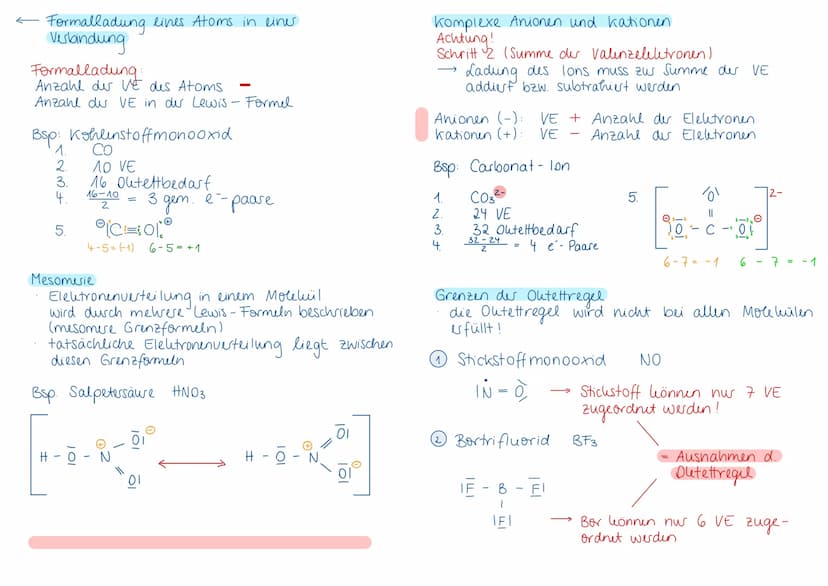 ← Formalladung eines Atoms in einer
Verbindung
Formalladung:
Anzahl der VE des Atoms –
Anzahl der VE in der Lewis-Formel
Bsp: Kohlenstoffmonooxid
1. CO
2. 10 VE
3. 16 Oktettbedarf
4. 16-10/2 = 3 gem. e⁻-paare
5. ⊖|C≡O|⊕
4-5=(-1) 6-5=+1
Mesomerie
· Elektronenverteilung in einem Molekül
wird durch mehrere Lewis-Formeln beschrieben
(mesomere Grenzformeln)
· tatsächliche Elektronenverteilung liegt zwischen
diesen Grenzformeln
Bsp. Salpetersäure HNO₃
H - O - N O| O| ⟷ H - O - N O| O|
Komplexe Anionen und Kationen
Achtung!
Schritt 2 (Summe der Valenzelektronen)
→ Ladung des Ions muss zur Summe der VE
addiert bzw. subtrahiert werden
Anionen (-): VE + Anzahl der Elektronen
Kationen (+): VE – Anzahl der Elektronen
Bsp: Carbonat-Ion
1. CO₃²⁻
2. 24 VE
3. 32 Oktettbedarf
4. 32-24/2 = 4 e⁻-Paare
5. [|O - C - O| ‖ O]²⁻
6-7=-1 6-7=-1
Grenzen der Oktettregel
· die Oktettregel wird nicht bei allen Molekülen
erfüllt!
① Stickstoffmonooxid NO
|N = O → Stickstoff können nur 7 VE
zugeordnet werden!
② Bortrifluorid BF₃
= Ausnahmen d.
Oktettregel
|F - B - F|
|F|
→ Bor können nur 6 VE zuge-
ordnet werden